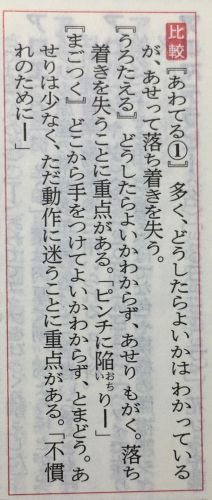 比較『あわてる①』 多く、どうしたらよいかは わかっている
が、あせって落ち着きを失う。
『うろたえる』 どうしたらよいかわからず、あせり もがく。落ち
着きを失うことに重点がある。「ピンチに陥おちいりー」
『まごつく』 どこから手をつけてよいかわからず、とまどう。あ
せりは少なく、ただ動作に迷うことに重点がある。「不慣
れのためにー」